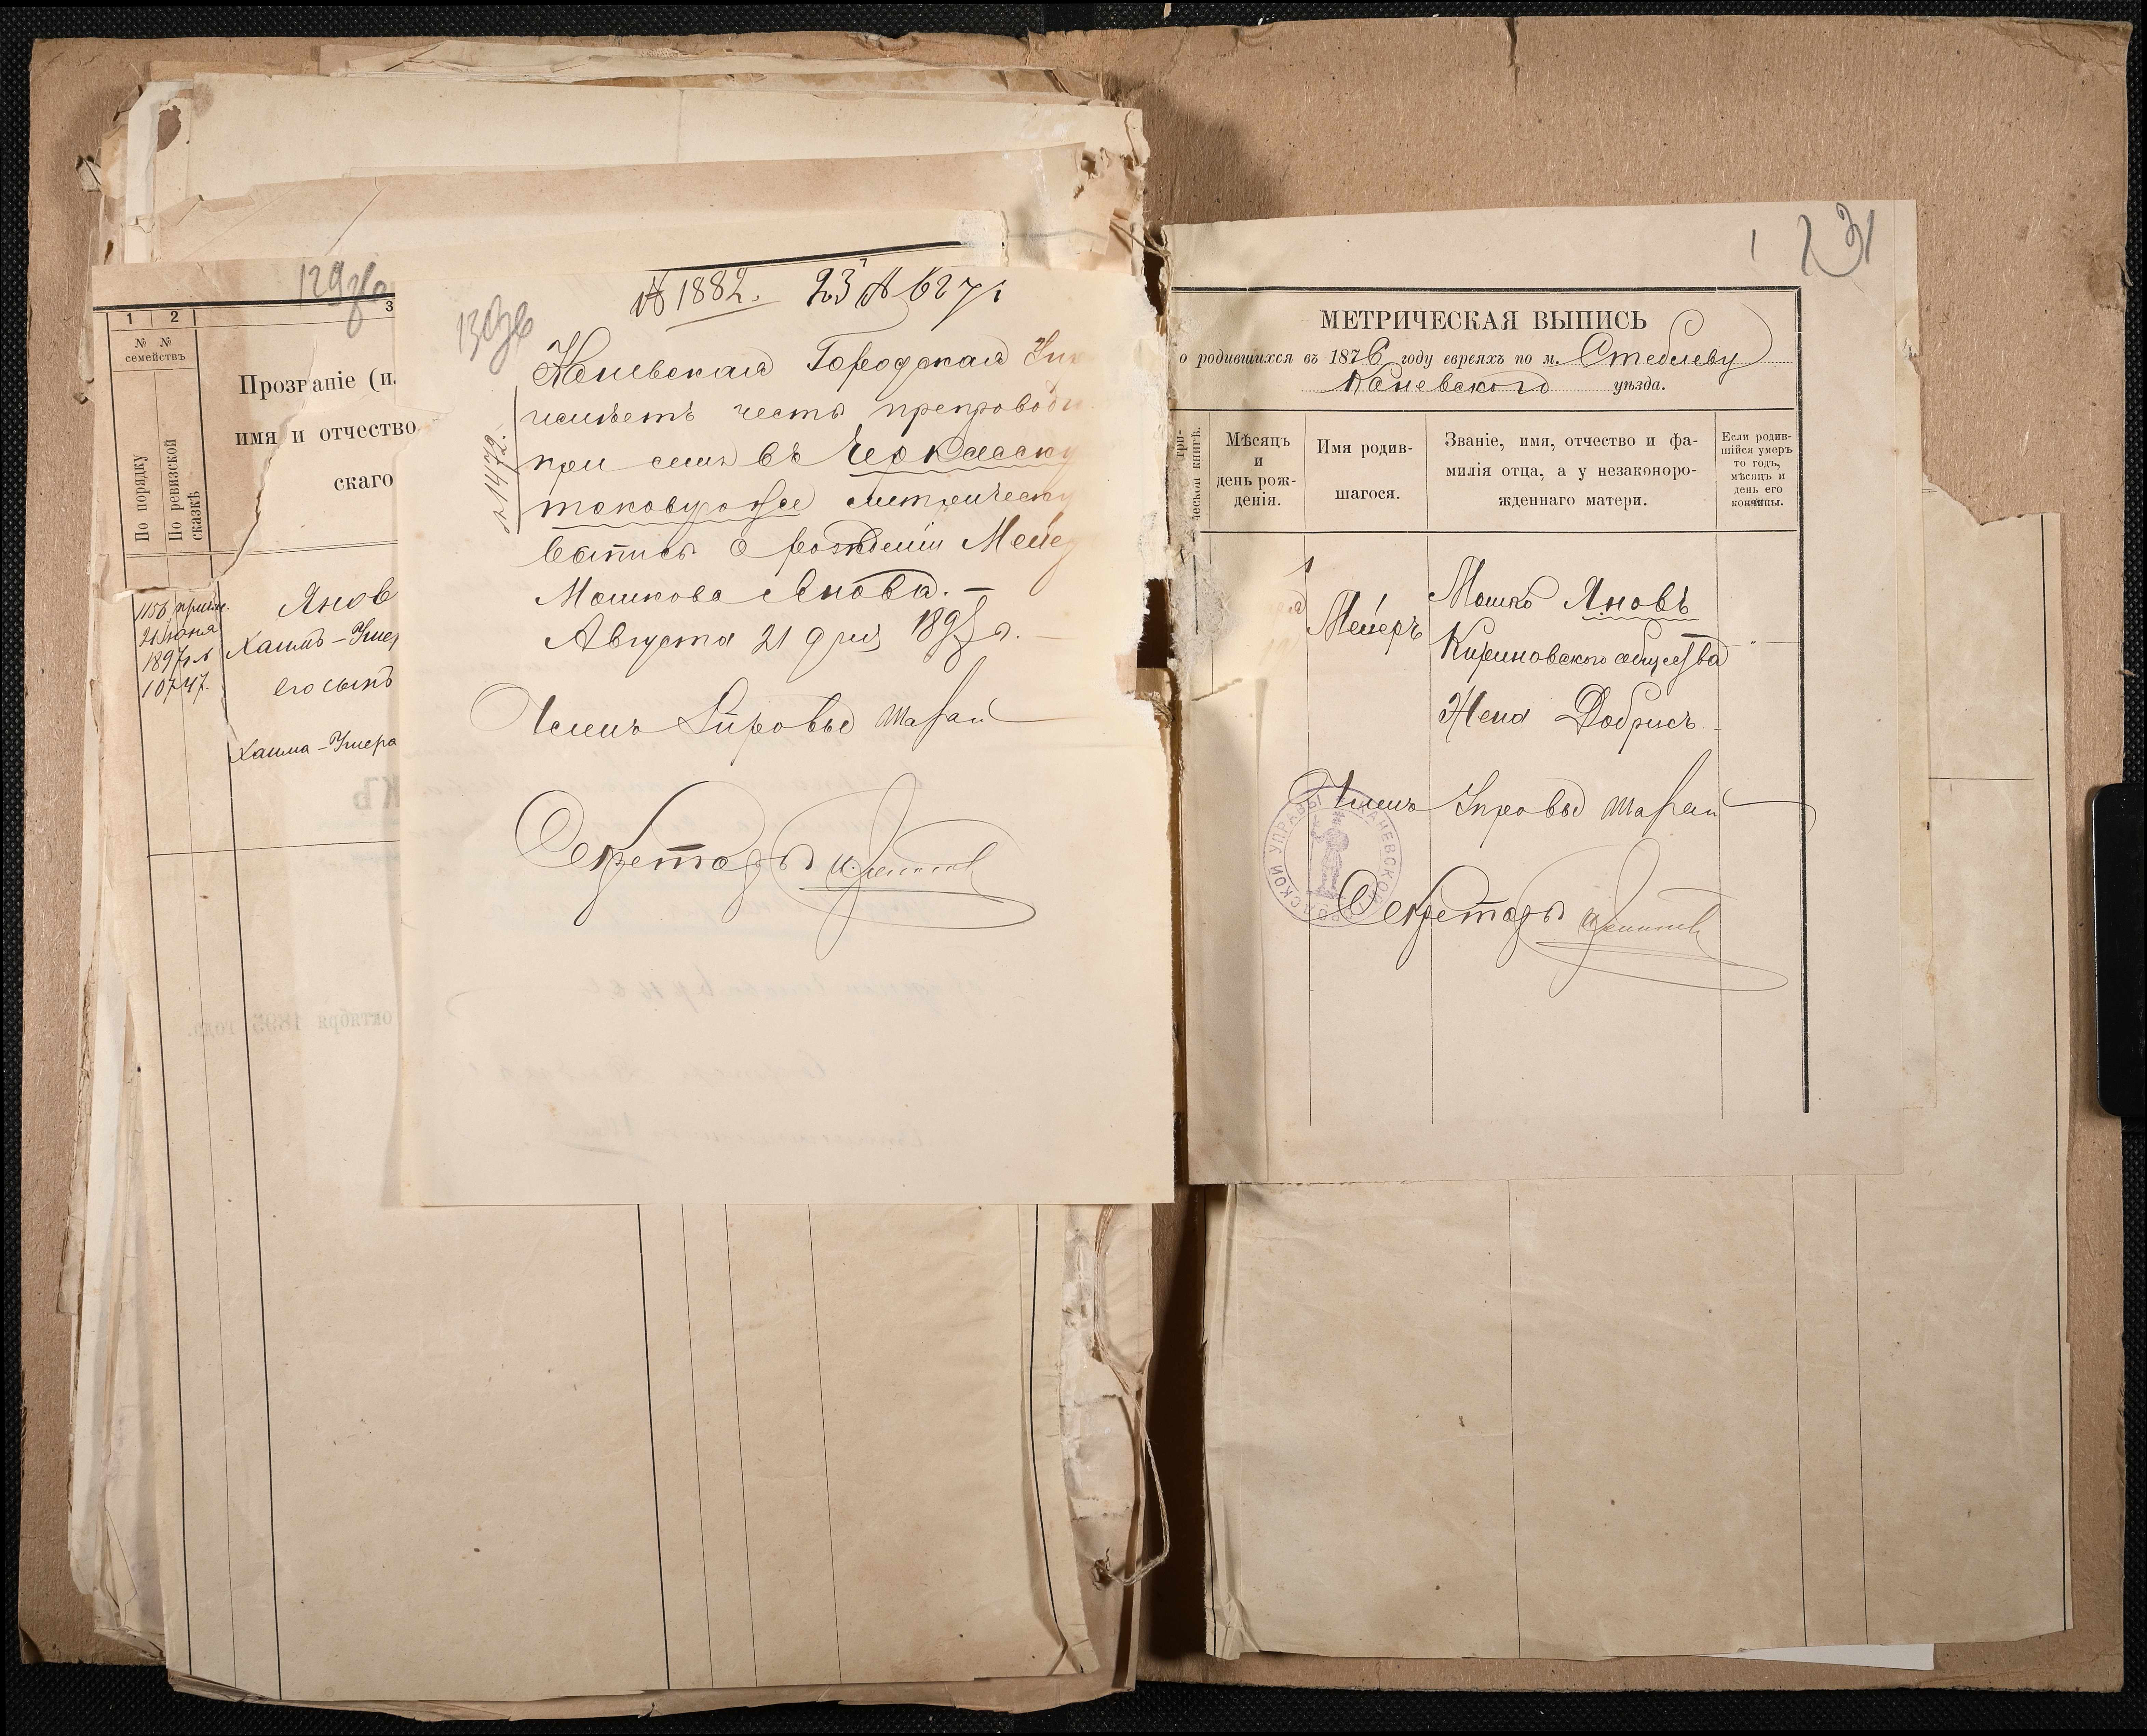 129об
1 2 3
№ №
семействъ
По порядку
По ревизской
сказкѣ
Прозваніе (и
имя и отчество
скаго
1156 прим.
21 Іюня
1897 г. №
10747.
Янов
Хаимъ-Умер
его сынъ
Хаима-Умера
октября 1895 года.
130об
№ 1882. 23 А 627
№ 1472.
Каневская Городская Упр
имѣетъ честь препроводи
при семъ въ Черкасску
таковую же метрическу
выпись о рожденіи Мейер
Мошкова Янова. —
Августа 21 дня 1897 г.
Членъ Управы Шарай
Секретарь
131
МЕТРИЧЕСКАЯ ВЫПИСЬ
о родившихся въ 1876 году евреяхъ по м. Стеблеву
Каневского уѣзда.
ческой книгѣ.
Мѣсяцъ
и
день рож-
денія.
Имя родив-
шагося.
Званіе, имя, отчество и фа-
милія отца, а у незаконоро-
жденнаго матери.
Если родив-
шійся умеръ
то годъ,
мѣсяцъ и
день его
кончины.
Мейеръ
Мошко Яновъ
общества
Жена Добрисъ
Членъ Управы Шарай
Секретарь
КАНЕВСКОЙ ГОРОДСКОЙ УПРАВЫ